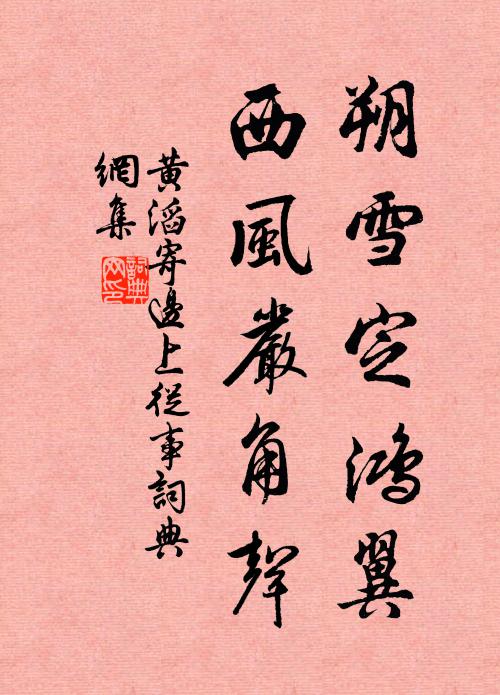 朔雪定鴻翼
西風嚴角聲
黃滔寄邊上從事詞典
網集
詞典
網印